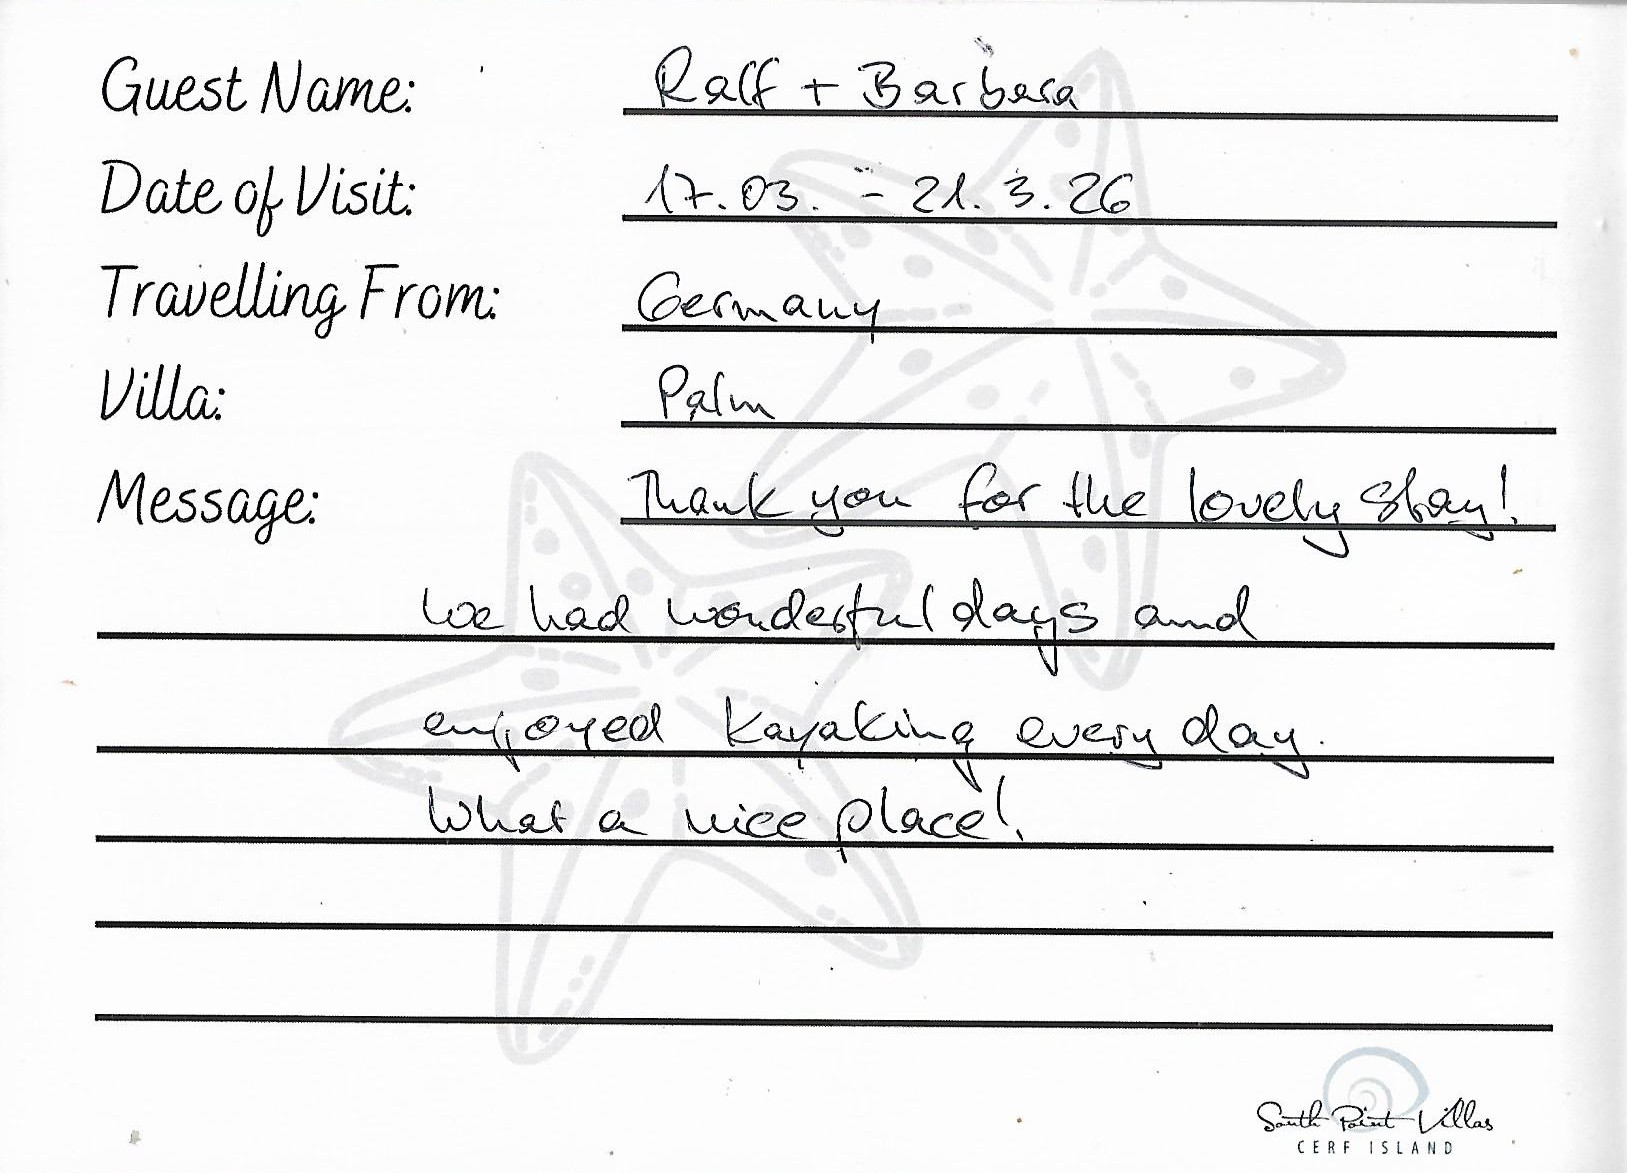 Guest Name: Ralf + Barbara
Date of Visit: 17.03. - 21.3.26
Travelling From: Germany
Villa: Palm
Message: Thank you for the lovely stay!
We had wonderful days and
enjoyed kayaking every day.
What a nice place!
South Point Villas
CERF ISLAND